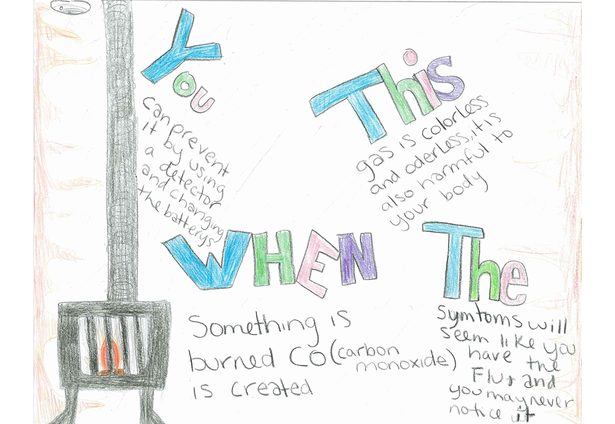 You
can prevent
it by using
a detector
and changing
the batterys
This
gas is colorless
and oderless, it is
also harmful to
your body
WHEN
Something is
burned CO (carbon
monoxide)
is created
The
symtoms will
seem like you
have the
Flu, and
you may never
notice it